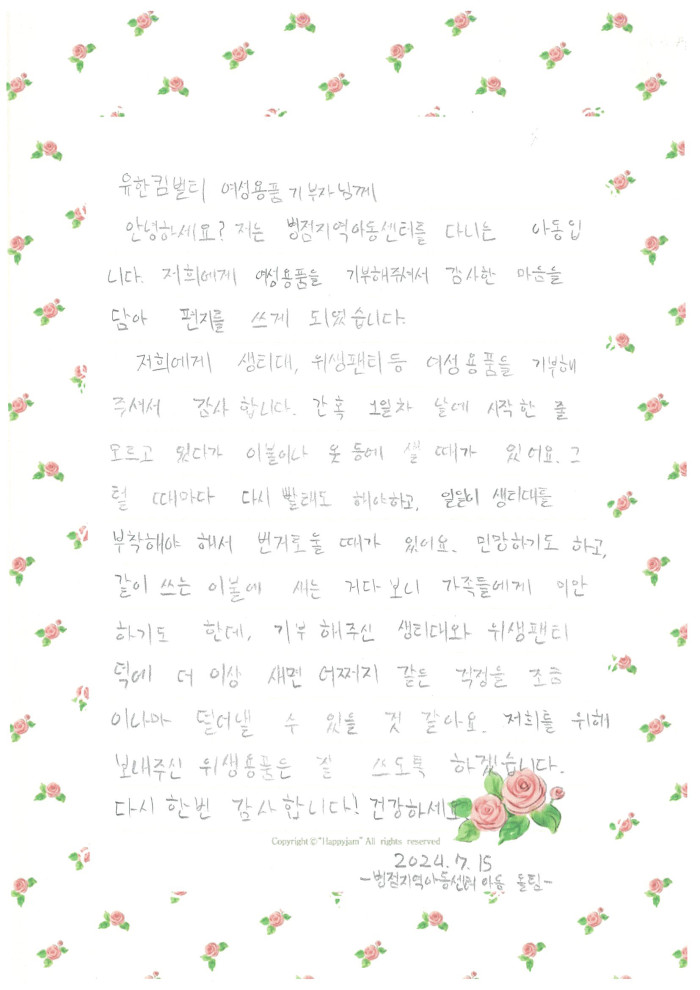 유한킴벌리 여성용품 기부자님께
안녕하세요? 저는 병점지역아동센터를 다니는 아동입
니다. 저희에게 여성용품을 기부해주셔서 감사한 마음을
담아 편지를 쓰게 되었습니다.
저희에게 생리대, 위생팬티 등 여성용품들 기부해
주셔서 감사합니다. 간혹 1일차 날에 시작한 줄
모르고 있다가 이불이나 옷 등에 샐 때가 있어요. 그
럴 때마다 다시 빨래도 해야하고, 일일이 생리대를
부착해야 해서 번거로울 때가 있어요. 민망하기도 하고,
같이 쓰는 이불에 새는 거다 보니 가족들에게 미안
하기도 한데, 기부해주신 생리대와 위생팬티
덕에 더 이상 새면 어쩌지 같은 걱정을 조금
이나마 덜어낼 수 있을 것 같아요. 저희를 위해
보내주신 위생용품은 잘 쓰도록 하겠습니다.
다시 한번 감사합니다! 건강하세요
Copyright©"Happyjam" All rights reserved
2024.7.15
-병점지역아동센터 아동 올림-